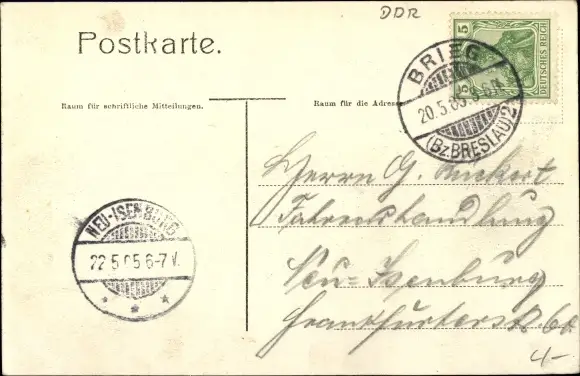 DDR
Postkarte.
5 5
DEUTSCHES REICH
BRIEG
20.5.05
(Bz.BRESLAU) 2
Raum für schriftliche Mitteilungen.
Raum für die Adresse
Herrn G.
Fahrradhandlung
Neu-Isenburg
Frankfurterstr. 60
NEU-ISENBURG
22.5.05 6-7 V.
4,-